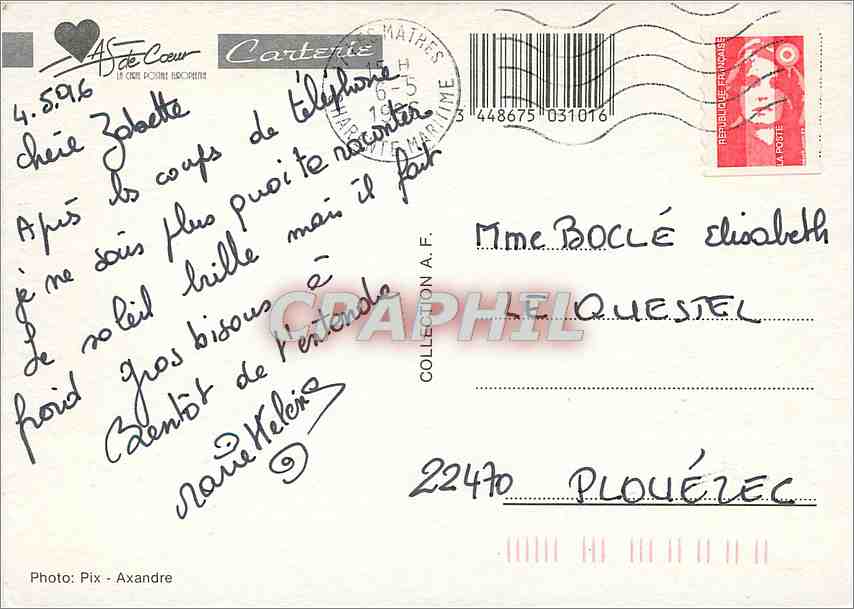 AS de Cœur
LA CARTE POSTALE EUROPEENNE
Carterie
LES MATHES
15 H
6-5
1996
CHARENTE MARITIME
3 448675 031016
REPUBLIQUE FRANÇAISE
LA POSTE
4.5.96
Chère Zabette
Après les coups de téléphone
je ne sais plus quoi te raconter
Le soleil brille mais il fait
froid gros bisous à
Bientôt de t'entendre
Marie Helène
COLLECTION A. F.
Mme BOCLÉ Elisabeth
LE QUESTEL
22470 PLOUÉZEC
CPAPHIL
Photo: Pix - Axandre